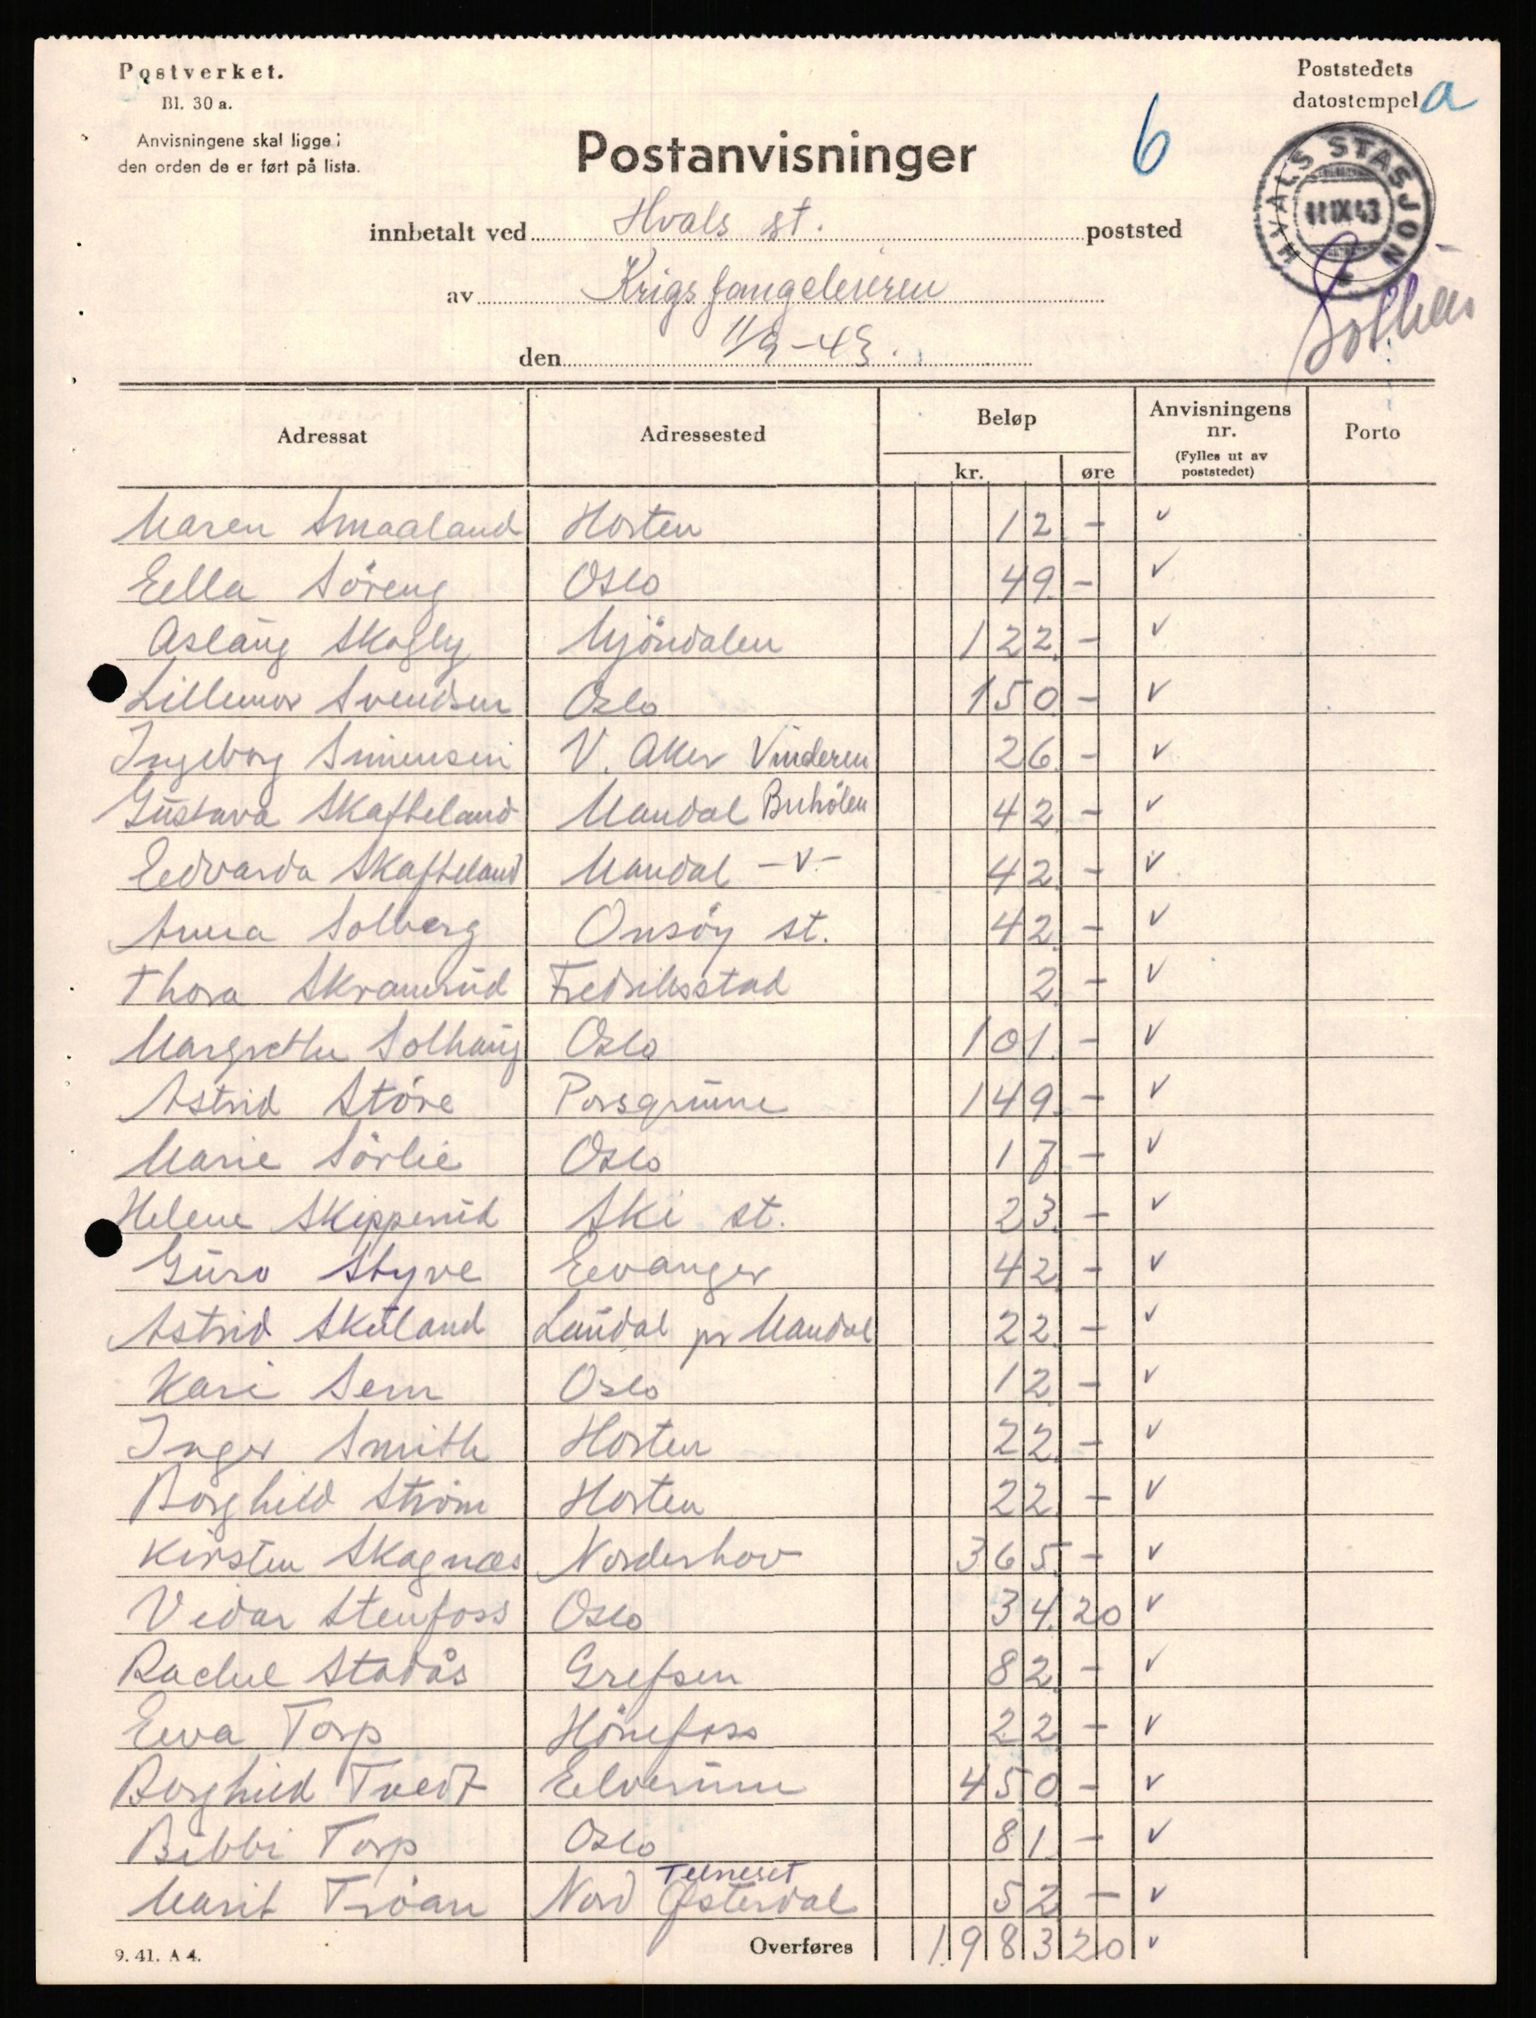 Postverket.
Bl. 30 a.
Anvisningene skal ligge i
den orden de er ført på lista.
Poststedets
datostempel a
6
Postanvisninger
HVALS STASJON
11 IX 43
innbetalt ved Hvals st. poststed
av Krigsfangeleieren
den 11/9-43.
Adressat Adressested Beløp Anvisningens nr. Porto
kr. øre (Fylles ut av poststedet)
Maren Smaaland Horten 12 - v
Eella Söreng Oslo 49. - v
Aslaug Skogly Mjöndalen 122. - v
Lillemor Svendsen Oslo 150 - v
Ingeborg Simensen V. Aker Vinderen 26 - v
Gustava Skafteland Mandal Buhölen 42 - v
Eedvarda Skafteland Mandal -v- 42. - v
Anna Solberg Onsöy st. 42. - v
Thora Skramrud Fredriksstad 2. - v
Margrethe Solhaug Oslo 101. - v
Astrid Störe Porsgrunn 149. - v
Marie Sörlie Oslo 17 - v
Helene Skipperud Ski st. 23. - v
Guro Styve Eevanger 42 - v
Astrid Skuland Laudal pr Mandal 22 - v
Kari Sem Oslo 12 - v
Inger Smith Horten 22 - v
Borghild Ström Horten 22 - v
Kirsten Skagnæs Norderhov 365. - v
Vidar Stenfoss Oslo 34. 20 v
Rachel Stadås Grefsen 82. - v
Eeva Torp Hönefoss 22. - v
Borghild Tvedt Eelverum 450 - v
Bibbi Torp Oslo 81. - v
Marit Tröan Nord Østerdal Telneset 52 - v
9. 41. A 4. Overføres 1.983 20 v